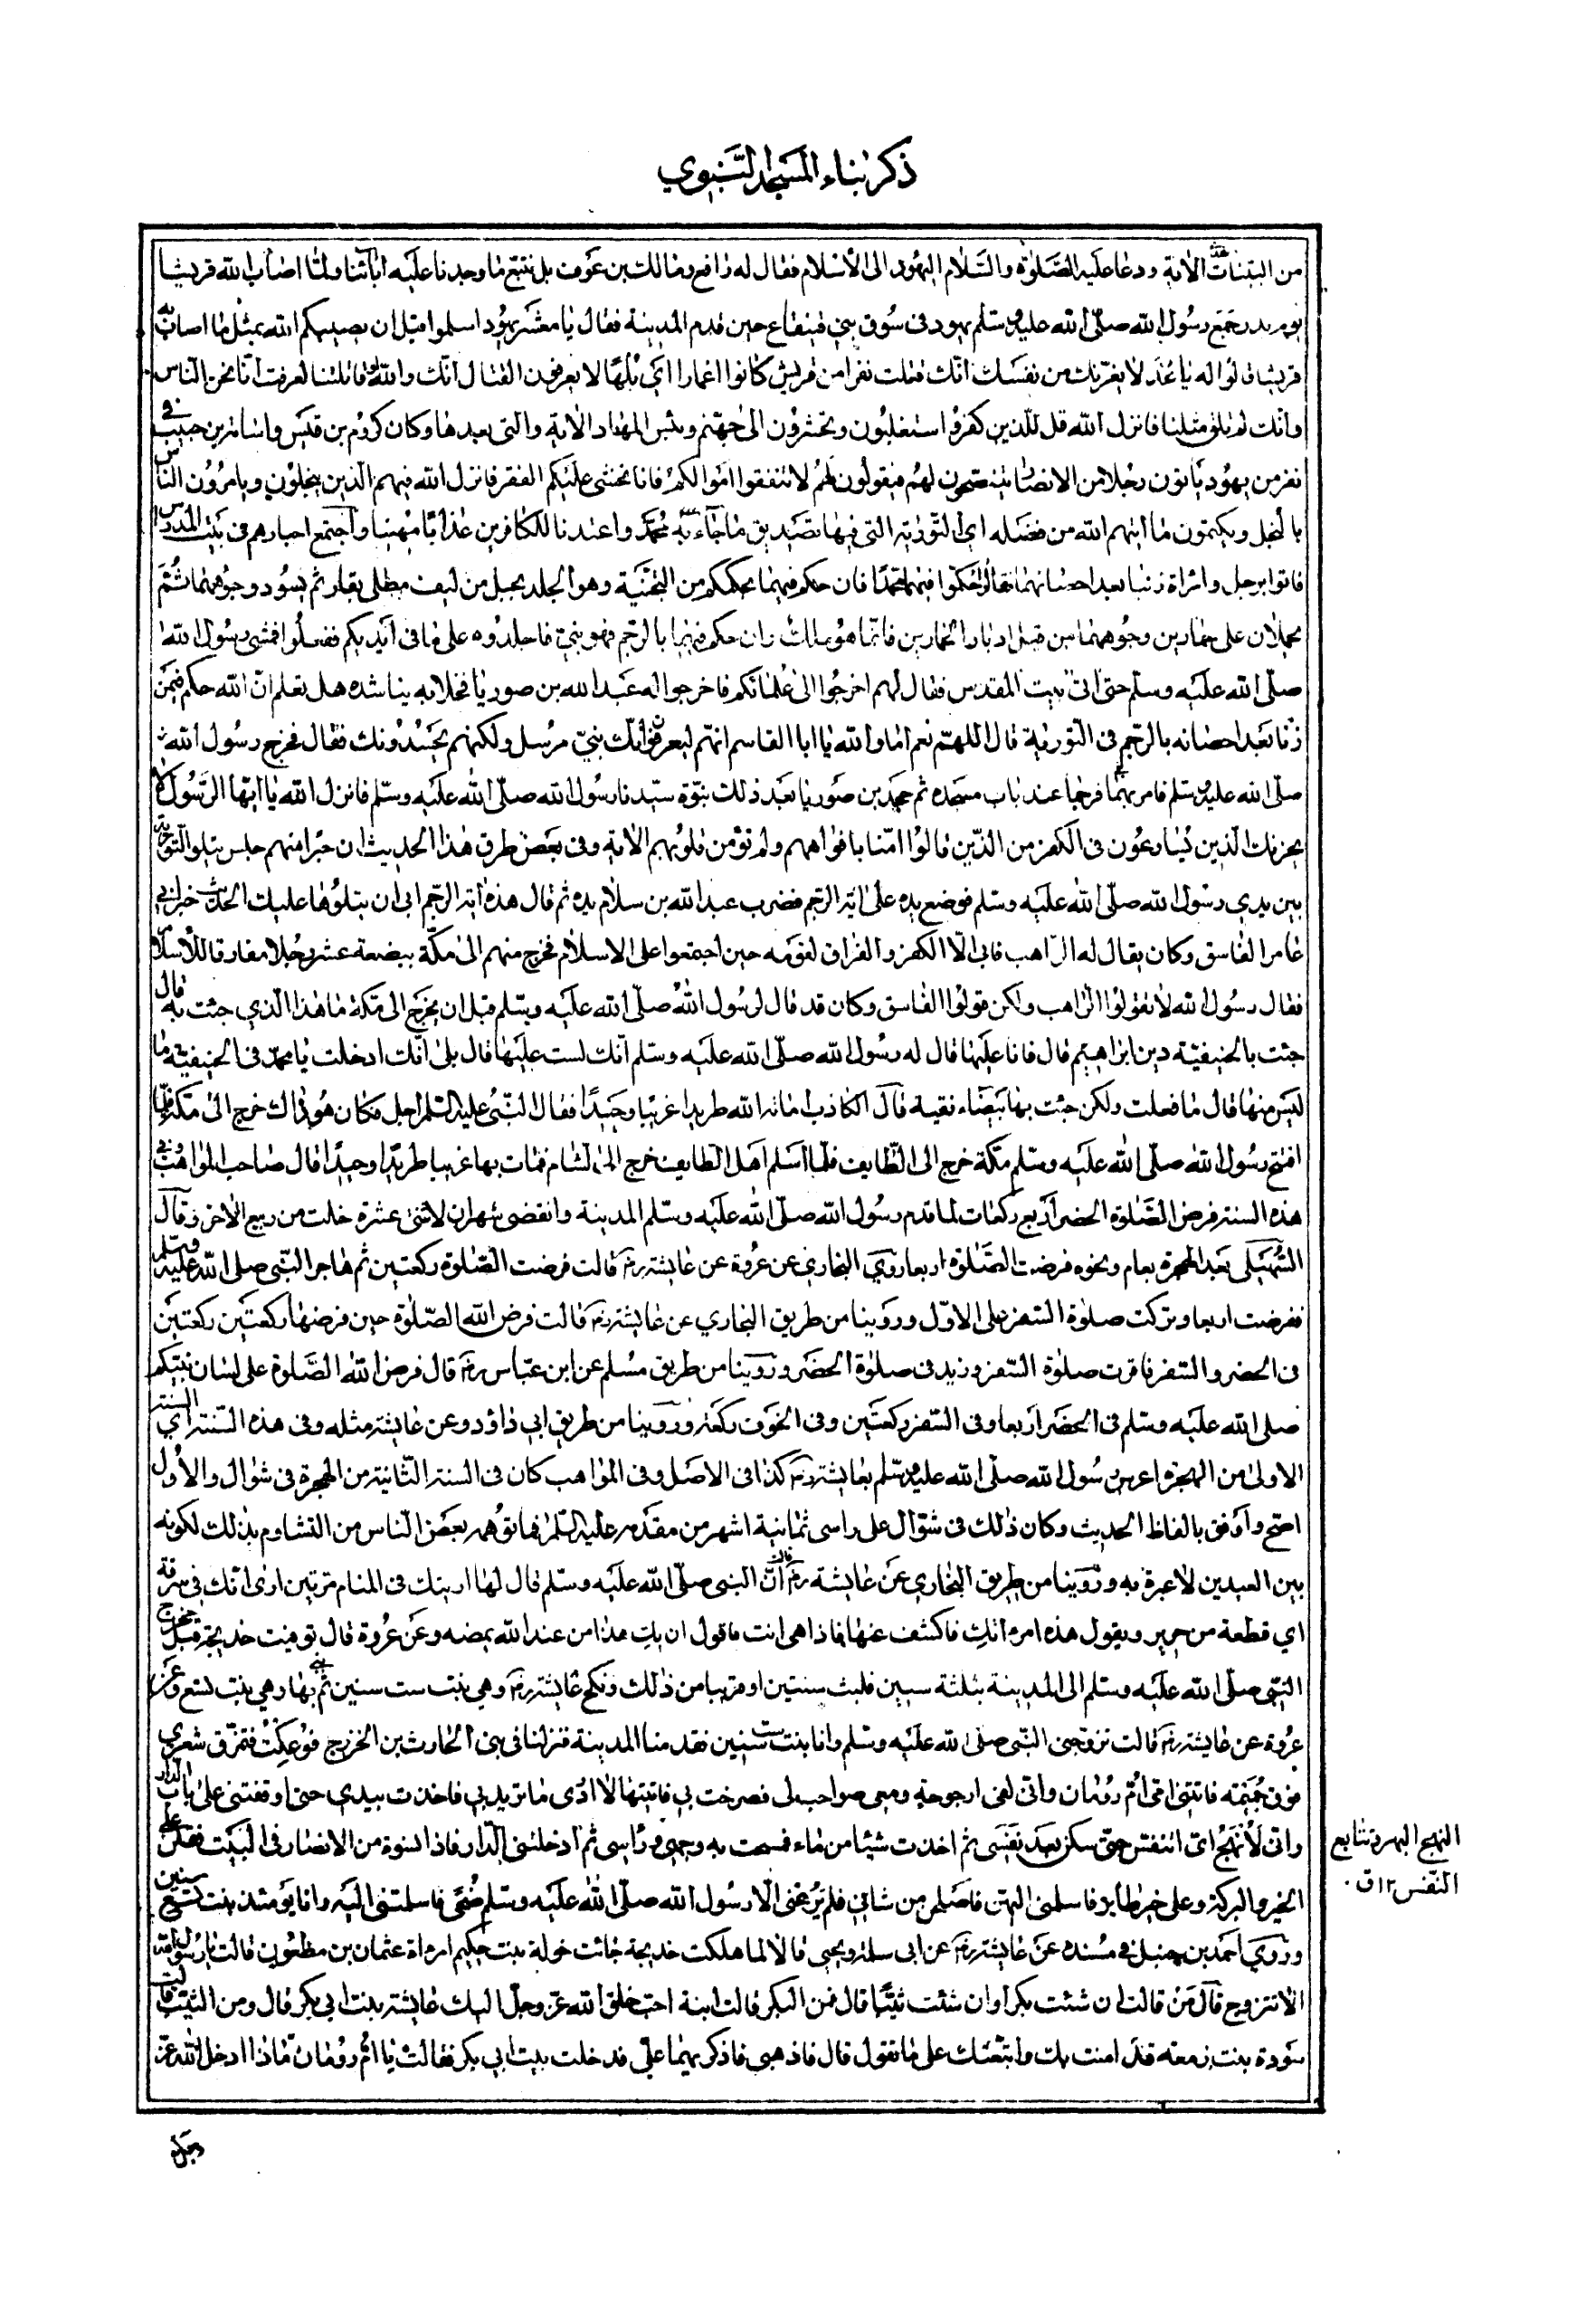 ذكر بناء المسجد النبوي
من البينات الاية ودعا عليه الصلوة والسلام اليهود الى الاسلام فقال له رافع ومالك بن عوف بل نتبع ما وجدنا عليه اباءنا ولما اصاب الله قريشا
يوم بدر جمع رسول الله صلى الله عليه وسلم يهود فى سوق بني قينقاع حين قدم المدينة فقال يا معشر يهود اسلموا قبل ان يصيبكم الله بمثل ما اصاب به
قريشا قالوا له يا محمد لا يغرنك من نفسك انك قتلت نفرا من قريش كانوا اغمارا اي بلها لا يعرفون القتال انك والله لو قاتلتنا لعرفت انا نحن الناس
وانك لم تلق مثلنا فانزل الله قل للذين كفروا ستغلبون وتحشرون الى جهنم وبئس المهاد الاية والتى بعدها وكان كردم بن قيس واسامة بن حبيب فى
نفر من يهود ياتون رجلا من الانصار ينتصحون لهم فيقولون لهم لا تنفقوا اموالكم فانا نخشى عليكم الفقر فانزل الله فيهم الذين يبخلون ويامرون الناس
بالبخل ويكتمون ما اتيهم الله من فضله اي التورية التى فيها تصديق ما جاء به محمد واعتدنا للكافرين عذابا مهينا واجتمع احبارهم فى بيت المدراس
فاتوا برجل وامراة زنيا بعد احصانهما فقالوا حكموا فيهما محمدا فان حكم فيهما بحكمكم من التجبية وهو الجلد بحبل من ليف مطلى بقار ثم يسود وجوههما ثم
يحملان على حمارين وجوههما من قبل ادبار الحمارين فانما هو ملك وان حكم فيهما بالرجم فهو نبي فاحذروه على ما فى ايديكم ففعلوا فمشى رسول الله
صلى الله عليه وسلم حتى اتى بيت المقدس فقال لهم اخرجوا الى علمائكم فاخرجوا له عبد الله بن صوريا فخلا به يناشده هل تعلم ان الله حكم فيمن
زنا بعد احصانه بالرجم فى التورية قال اللهم نعم اما والله يا ابا القاسم انهم ليعرفون انك نبي مرسل ولكنهم يحسدونك فقال فخرج رسول الله
صلى الله عليه وسلم فامر بهما فرجما عند باب مسجده ثم جحد بن صوريا بعد ذلك نبوة سيدنا رسول الله صلى الله عليه وسلم فانزل الله يا ايها الرسول لا
يحزنك الذين يسارعون فى الكفر من الذين قالوا امنا بافواههم ولم تؤمن قلوبهم الاية وفى بعض طرق هذا الحديث ان حبرا منهم جلس يتلو التورية
بين يدي رسول الله صلى الله عليه وسلم فوضع يده على اية الرجم فضرب عبد الله بن سلام يده ثم قال هذه اية الرجم ابى ان يتلوها عليك الحديث خبر ابي
عامر الفاسق وكان يقال له الراهب فابى الا الكفر والفراق لقومه حين اجتمعوا على الاسلام فخرج منهم الى مكة ببضعة عشر رجلا مفارقا للاسلام
فقال رسول الله لا تقولوا الراهب ولكن قولوا الفاسق وكان قد قال لرسول الله صلى الله عليه وسلم قبل ان يخرج الى مكة ما هذا الذي جئت به قال
جئت بالحنيفية دين ابراهيم قال فانا عليها قال له رسول الله صلى الله عليه وسلم انك لست عليها قال بلى انك ادخلت يا محمد فى الحنيفية ما
ليس منها قال ما فعلت ولكن جئت بها بيضاء نقية قال الكاذب اماته الله طريدا غريبا وحيدا فقال النبي عليه السلم اجل فكان هو ذاك خرج الى مكة فلما
افتتح رسول الله صلى الله عليه وسلم مكة خرج الى الطايف فلما اسلم اهل الطايف خرج الى الشام فمات بها غريبا طريدا وحيدا قال صاحب المواهب وفى
هذه السنة فرض الصلوة الحضر اربع ركعات لما قدم رسول الله صلى الله عليه وسلم المدينة وانقضى شهران لاثنى عشرة خلت من ربيع الاخر وقال
السهيلى بعد الهجرة بعام ونحوه فرضت الصلوة اربعا روي البخاري عن عروة عن عايشة رض قالت فرضت الصلوة ركعتين ثم هاجر النبى صلى الله عليه وسلم
ففرضت اربعا وتركت صلوة السفر على الاول وروينا من طريق البخاري عن عايشة رض قالت فرض الله الصلوة حين فرضها ركعتين ركعتين
فى الحضر والسفر فاقرت صلوة السفر وزيد فى صلوة الحضر وروينا من طريق مسلم عن ابن عباس رض قال فرض الله الصلوة على لسان نبيكم
صلى الله عليه وسلم فى الحضر اربعا وفى السفر ركعتين وفى الخوف ركعة وروينا من طريق ابي داؤد وعن عايشة مثله وفى هذه السنة اي السنة
الاولى من الهجرة اعرس رسول الله صلى الله عليه وسلم بعايشة رض كذا فى الاصل وفى المواهب كان فى السنة الثانية من الهجرة فى شوال والاول
اصح واوفق بالفاظ الحديث وكان ذلك فى شوال على راس ثمانية اشهر من مقدمه عليه السلم فما توهمه بعض الناس من التشاوم بذلك لكونه
بين العيدين لا عبرة به وروينا من طريق البخاري عن عايشة رض ان النبى صلى الله عليه وسلم قال لها اريتك فى المنام مرتين ارى انك فى سرقة
اي قطعة من حرير ويقول هذه امراتك فاكشف عنها فاذا هى انت فاقول ان يك هذا من عند الله يمضه وعن عروة قال توفيت خديجة قبل مخرج
النبى صلى الله عليه وسلم الى المدينة بثلثة سنين فلبث سنتين او قريبا من ذلك ونكح عايشة رض وهى بنت ست سنين ثم بنى بها وهي بنت تسع وعن
عروة عن عايشة رض قالت تزوجنى النبى صلى الله عليه وسلم وانا بنت ست سنين فقدمنا المدينة فنزلنا فى بنى الحارث بن الخزرج فوعكت فتمزق شعري
فوفى جميمة فاتتنى امى ام رومان وانى لفى ارجوحة ومعى صواحب لى فصرخت بي فاتيتها لا ادرى ما تريد بي فاخذت بيدي حتى اوقفتنى على باب الدار
وانى لانهج اى اتنفس حتى سكن بعد نفسى ثم اخذت شيئا من ماء فمسحت به وجهى وراسى ثم ادخلتنى الدار فاذا نسوة من الانصار فى البيت فقلن على
الخير والبركة وعلى خير طاير فاسلمتنى اليهن فاصلحن من شانى فلم يرعنى الا رسول الله صلى الله عليه وسلم ضحى فاسلمتنى اليه وانا يومئذ بنت تسع سنين
وروي احمد بن حنبل فى مسنده عن عايشة رض عن ابى سلمة ويحيى قالا لما هلكت خديجة جائت خولة بنت حكيم امراة عثمان بن مظعون قالت يا رسول الله
الا تتزوج قال من قالت ان شئت بكرا وان شئت ثيبا قال فمن البكر قالت ابنة احب خلق الله عز وجل اليك عايشة بنت ابي بكر قال ومن الثيب قالت
سودة بنت زمعة قد امنت بك واتبعتك على ما تقول قال فاذهبى فاذكريهما علي فدخلت بيت ابي بكر فقالت يا ام رومان ماذا ادخل الله عز
النهج البهر وتتابع
النفس ١٢ ق
وجل